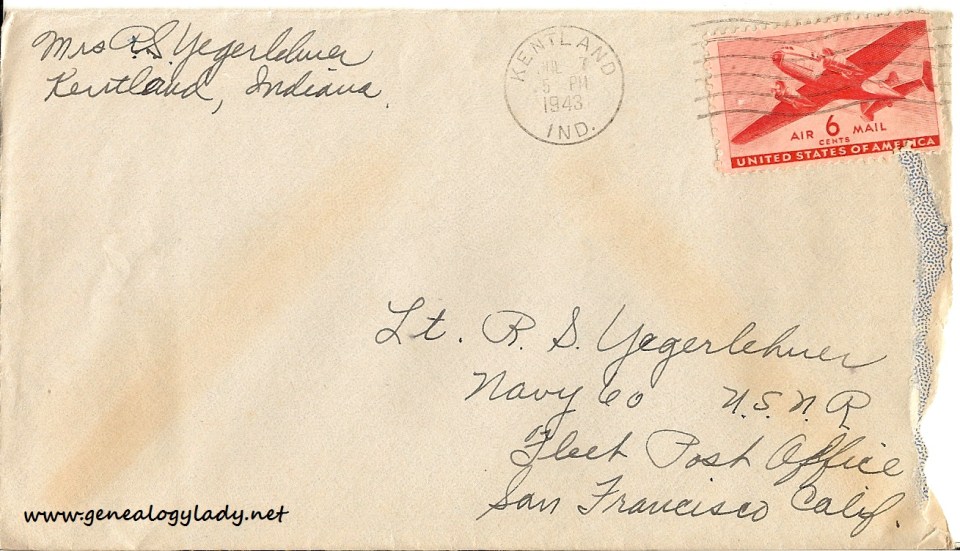 Mrs R.S. Yegerlehner
Kentland, Indiana
KENTLAND
JUL 7
5 PM
1943
IND.
AIR 6 MAIL
CENTS
UNITED STATES OF AMERICA
Lt. R. S. Yegerlehner
Navy 60 U.S.N.R.
Fleet Post Office
San Francisco Calif.
www.genealogylady.net